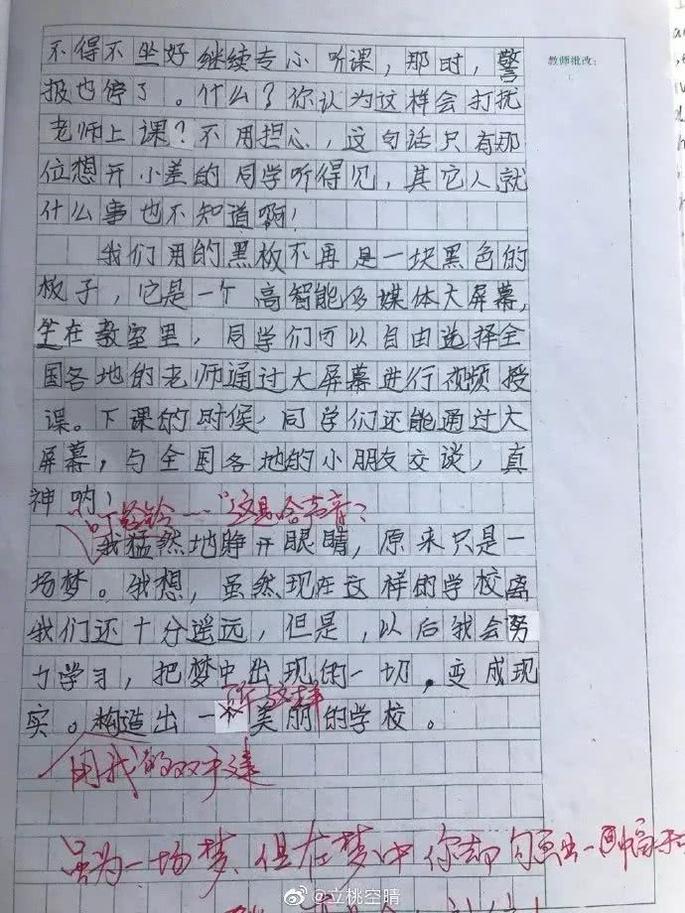 不得不坐好继续专心听课，那时，警
教师批改：
报也停了。什么？你认为这样会打扰
老师上课？不用担心，这句话只有那
位想开小差的同学听得见，其它人就
什么事也不知道啊！
我们用的黑板不再是一块黑色的
板子，它是一个高智能多媒体大屏幕，
坐在教室里，同学们可以自由选择全
国各地的老师通过大屏幕进行视频授
课。下课的时候，同学们还能通过大
屏幕，与全国各地的小朋友交谈，真
神哟！
"叮铃铃……"这是啥声音？
我猛然地睁开眼睛，原来只是一
场梦。我想，虽然现在这样的学校离
我们还十分遥远，但是，以后我会努
力学习，把梦中出现的一切，变成现
实。构造出一个美丽的学校。
用我的双手建
虽为一场梦，但在梦中你却勾画出一幅
@立桃空晴